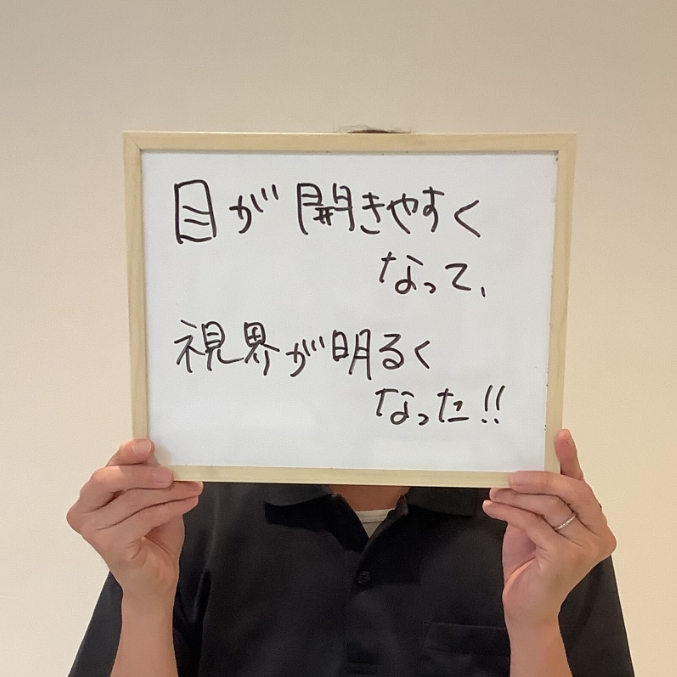 目が開きやすく
なって、
視界が明るく
なった!!